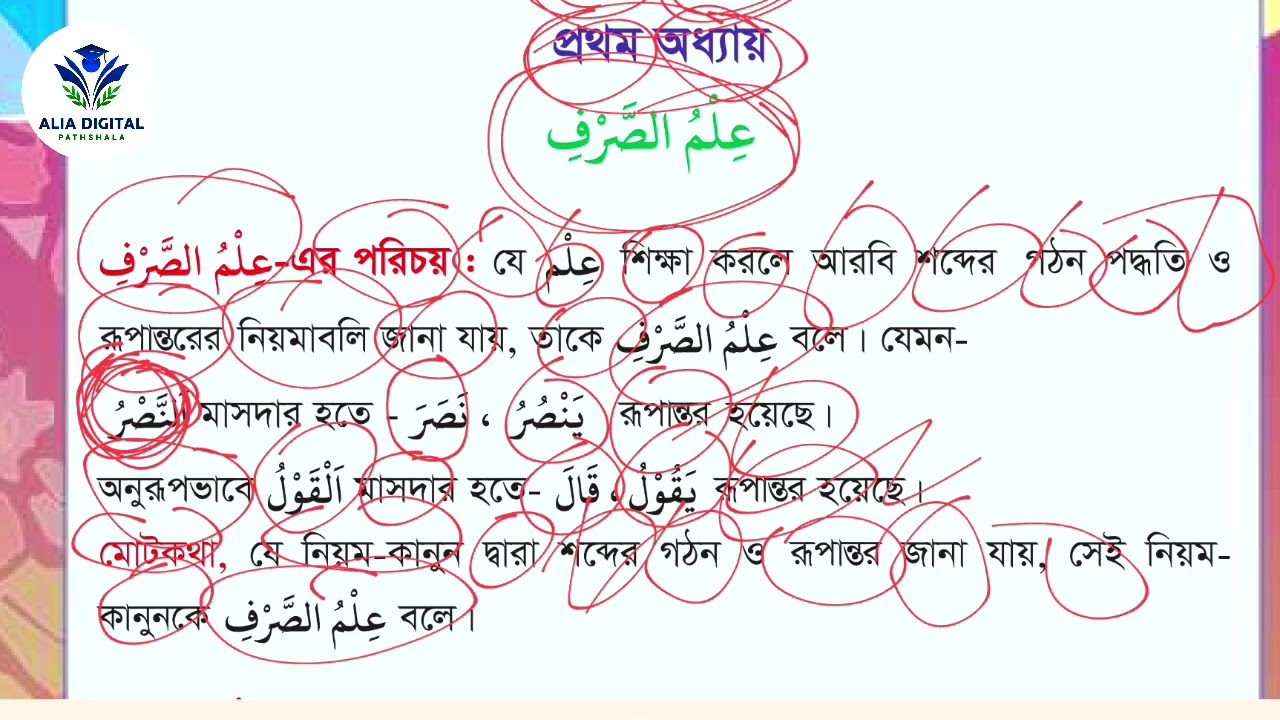 ALIA DIGITAL
PATHSHALA
প্রথম অধ্যায়
عِلْمُ الصَّرْفِ
عِلْمُ الصَّرْفِ-এর পরিচয় : যে عِلْم শিক্ষা করলে আরবি শব্দের গঠন পদ্ধতি ও
রূপান্তরের নিয়মাবলি জানা যায়, তাকে عِلْمُ الصَّرْفِ বলে। যেমন-
اَلنَّصْرُ মাসদার হতে - نَصَرَ ، يَنْصُرُ রূপান্তর হয়েছে।
অনুরূপভাবে اَلْقَوْلُ মাসদার হতে- قَالَ ، يَقُوْلُ রূপান্তর হয়েছে।
মোটকথা, যে নিয়ম-কানুন দ্বারা শব্দের গঠন ও রূপান্তর জানা যায়, সেই নিয়ম-
কানুনকে عِلْمُ الصَّرْفِ বলে।